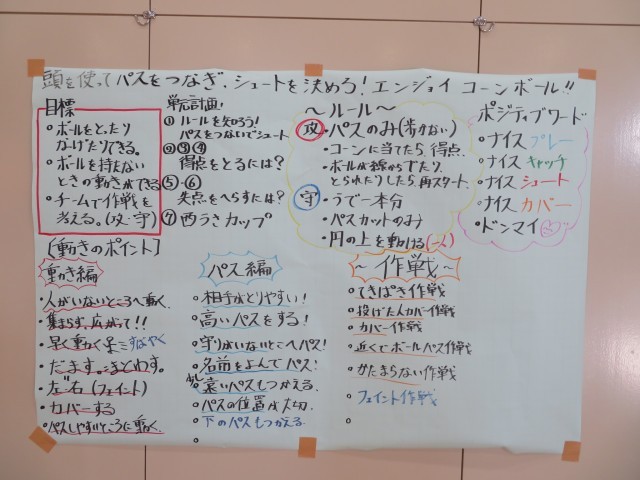 頭を使ってパスをつなぎ、シュートを決めろ!エンジョイ コーンボール!!
目標
・ボールをとったり
なげたりできる。
・ボールを持たない
ときの動きができる
・チームで作戦を
考える。(攻・守)
単元計画!
① ルールを知ろう!
パスをつないでシュート
②③④
得点をとるには?
⑤・⑥
失点をへらすには?
⑦ 西うきカップ
〜ルール〜
攻・パスのみ(歩かない)
・コーンに当てたら、得点
・ボールが線からでたり、
とられたりしたら、再スタート
守・うで一本分
・パスカットのみ
・円の上を動ける(一人)
ポジティブワード
・ナイス プレー
・ナイス キャッチ
・ナイス シュート
・ナイス カバー
・ドンマイ
[動きのポイント]
動き編
・人がいないところへ動く。
・集まらず、広がって!!
・早く動く すばやく
・だます。まどわす。
・左右(フェイント)
・カバーする
・パスしやすいところに動く。
パス編
・相手がとりやすい!
・高いパスをする!
・守りがいないとこへパス!
・名前をよんでパス!
・遠いパスもつかえる。
・パスの位置が大切。
・下のパスもつかえる
〜作戦〜
・てきぱき作戦
・投げた人カバー作戦
・カバー作戦
・近くでボールパス作戦
・かたまらない作戦
・フェイント作戦